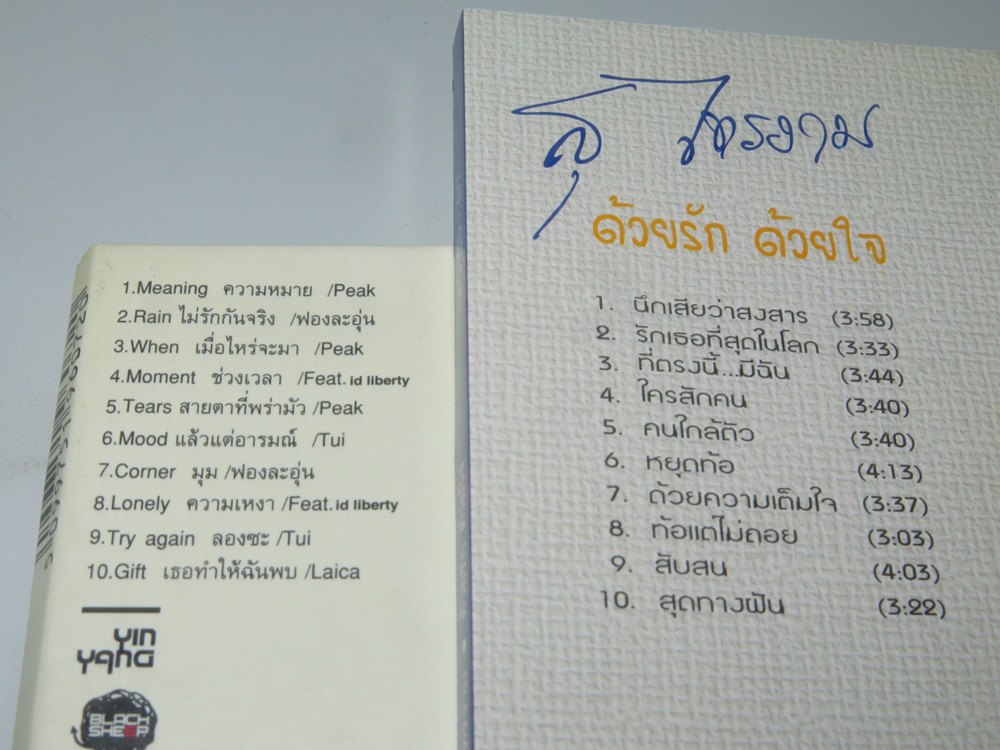 1.Meaning ความหมาย /Peak
2.Rain ไม่รักกันจริง /ฟองละอุ่น
3.When เมื่อไหร่จะมา /Peak
4.Moment ช่วงเวลา /Feat. id liberty
5.Tears สายตาที่พร่ามัว /Peak
6.Mood แล้วแต่อารมณ์ /Tui
7.Corner มุม /ฟองละอุ่น
8.Lonely ความเหงา /Feat. id liberty
9.Try again ลองซะ /Tui
10.Gift เธอทำให้ฉันพบ /Laica
yin
yang
BLACK
SHEEP
สุ ไทรงาม
ด้วยรัก ด้วยใจ
1. นึกเสียว่าสงสาร (3:58)
2. รักเธอที่สุดในโลก (3:33)
3. ที่ตรงนี้...มีฉัน (3:44)
4. ใครสักคน (3:40)
5. คนใกล้ตัว (3:40)
6. หยุดท้อ (4:13)
7. ด้วยความเต็มใจ (3:37)
8. ท้อแต่ไม่ถอย (3:03)
9. สับสน (4:03)
10. สุดทางฝัน (3:22)